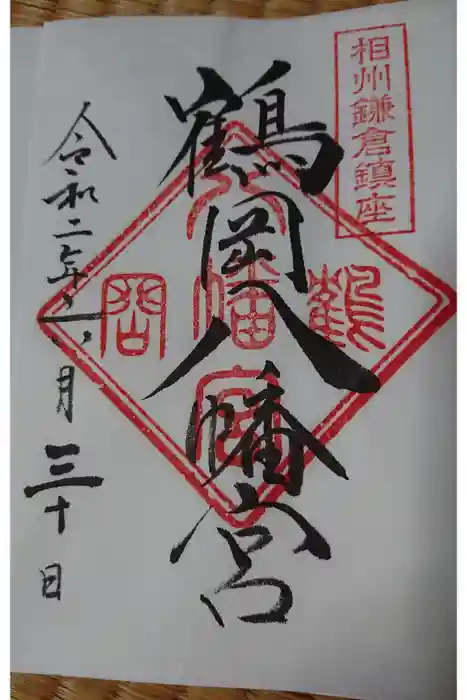 相州鎌倉鎮座
鶴岡八幡宮
鶴岡八幡宮
令和二年六月三十日